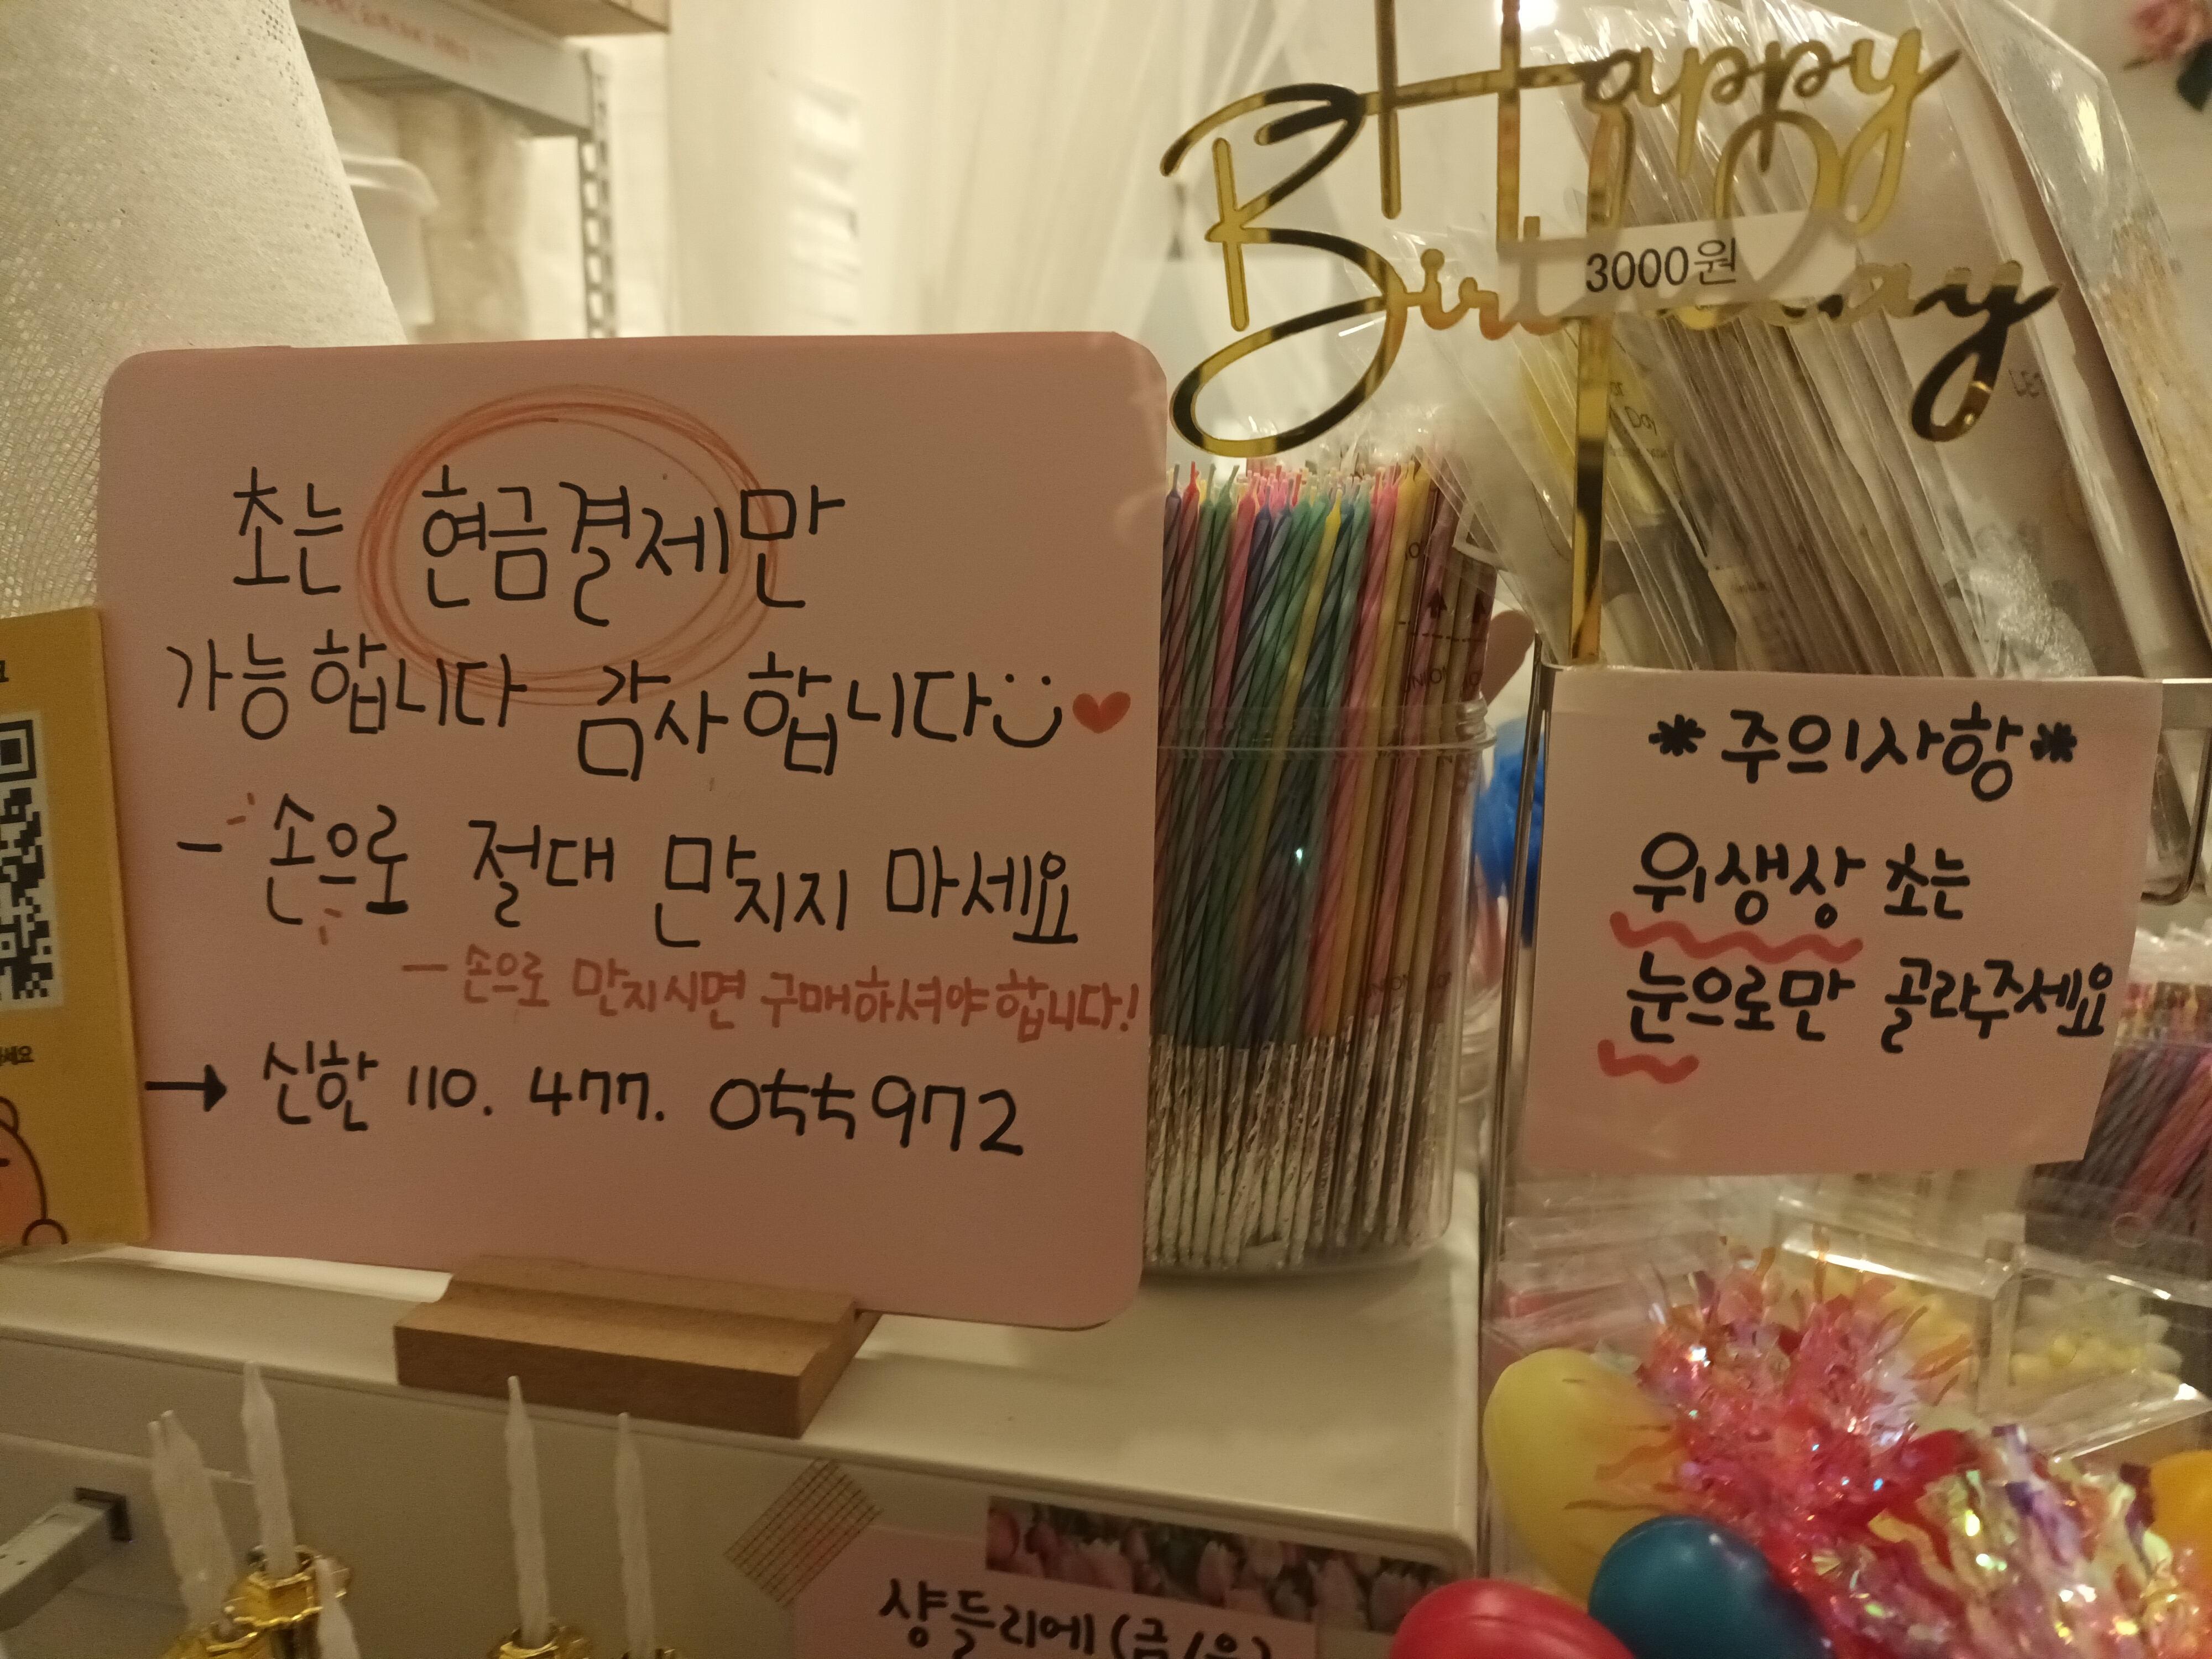 초는 현금결제만
가능합니다 감사합니다
- 손으로 절대 만지지 마세요
- 손으로 만지시면 구매하셔야합니다!
→ 신한 110. 477. 055972
Happy
Birthday
3000원
*주의사항*
위생상 초는
눈으로만 골라주세요
샹들리에 (금/은)